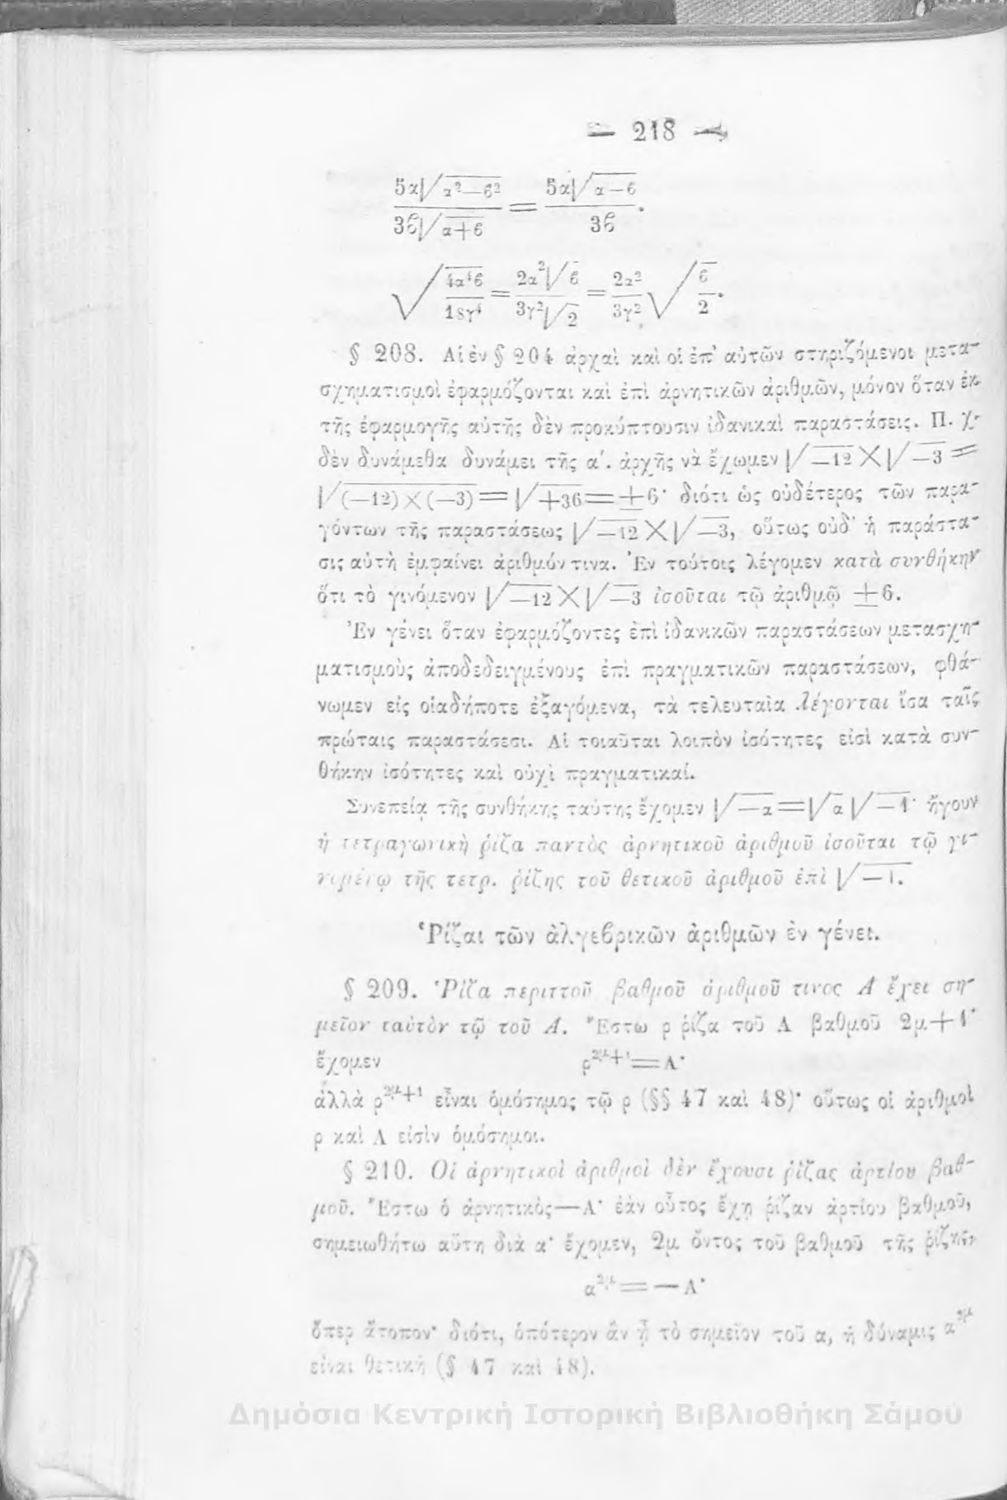 — 218 —
5α√α²—β² / 3β√α+β = 5α√α—β / 3β.
√4α⁴β / 18γ⁴ = 2α²√β / 3γ²√2 = 2α² / 3γ² √β / 2.
§ 208. Αἱ ἐν § 204 ἀρχαὶ καὶ οἱ ἐπ' αὐτῶν στηριζόμενοι μετα-
σχηματισμοὶ ἐφαρμόζονται καὶ ἐπὶ ἀρνητικῶν ἀριθμῶν, μόνον ὅταν ἐκ
τῆς ἐφαρμογῆς αὐτῆς δὲν προκύπτουσιν ἰδανικαὶ παραστάσεις. Π. χ.
δὲν δυνάμεθα δυνάμει τῆς α'. ἀρχῆς νὰ ἔχωμεν √—12 × √—3 =
√(—12)×(—3) = √+36 = ±6· διότι ὡς οὐδέτερος τῶν παρα-
γόντων τῆς παραστάσεως √—12 × √—3, οὕτως οὐδ' ἡ παράστα-
σις αὐτὴ ἐμφαίνει ἀριθμόν τινα. Ἐν τούτοις λέγομεν κατὰ συνθήκην
ὅτι τὸ γινόμενον √—12 × √—3 ἰσοῦται τῷ ἀριθμῷ ±6.
Ἐν γένει ὅταν ἐφαρμόζοντες ἐπὶ ἰδανικῶν παραστάσεων μετασχη-
ματισμοὺς ἀποδεδειγμένους ἐπὶ πραγματικῶν παραστάσεων, φθά-
νωμεν εἰς οἱαδήποτε ἐξαγόμενα, τὰ τελευταῖα λέγονται ἴσα ταῖς
πρώταις παραστάσεσι. Αἱ τοιαῦται λοιπὸν ἰσότητες εἰσὶ κατὰ συν-
θήκην ἰσότητες καὶ οὐχὶ πραγματικαί.
Συνεπείᾳ τῆς συνθήκης ταύτης ἔχομεν √—α = √α √—1· ἤγουν
ἡ τετραγωνικὴ ῥίζα παντὸς ἀρνητικοῦ ἀριθμοῦ ἰσοῦται τῷ γι-
νομένῳ τῆς τετρ. ῥίζης τοῦ θετικοῦ ἀριθμοῦ ἐπὶ √—1.
Ῥίζαι τῶν ἀλγεβρικῶν ἀριθμῶν ἐν γένει.
§ 209. Ῥίζα περιττοῦ βαθμοῦ ἀριθμοῦ τινος Α ἔχει ση-
μεῖον ταὐτὸν τῷ τοῦ Α. Ἔστω ρ ῥίζα τοῦ Α βαθμοῦ 2μ+1·
ἔχομεν ρ²ᵘ⁺¹=Α·
ἀλλὰ ρ²ᵘ⁺¹ εἶναι ὁμόσημος τῷ ρ (§§ 47 καὶ 48)· οὕτως οἱ ἀριθμοὶ
ρ καὶ Α εἰσὶν ὁμόσημοι.
§ 210. Οἱ ἀρνητικοὶ ἀριθμοὶ δὲν ἔχουσι ῥίζας ἀρτίου βαθ-
μοῦ. Ἔστω ὁ ἀρνητικὸς—Α· ἐὰν οὗτος ἔχῃ ῥίζαν ἀρτίου βαθμοῦ,
σημειωθήτω αὕτη διὰ α· ἔχομεν, 2μ ὄντος τοῦ βαθμοῦ τῆς ῥίζης,
α²ᵘ = —Α·
ὅπερ ἄτοπον· διότι, ὁπότερον ἂν ᾖ τὸ σημεῖον τοῦ α, ἡ δύναμις α²ᵘ
εἶναι θετικὴ (§ 47 καὶ 48).
Δημόσια Κεντρική Ιστορική Βιβλιοθήκη Σάμου